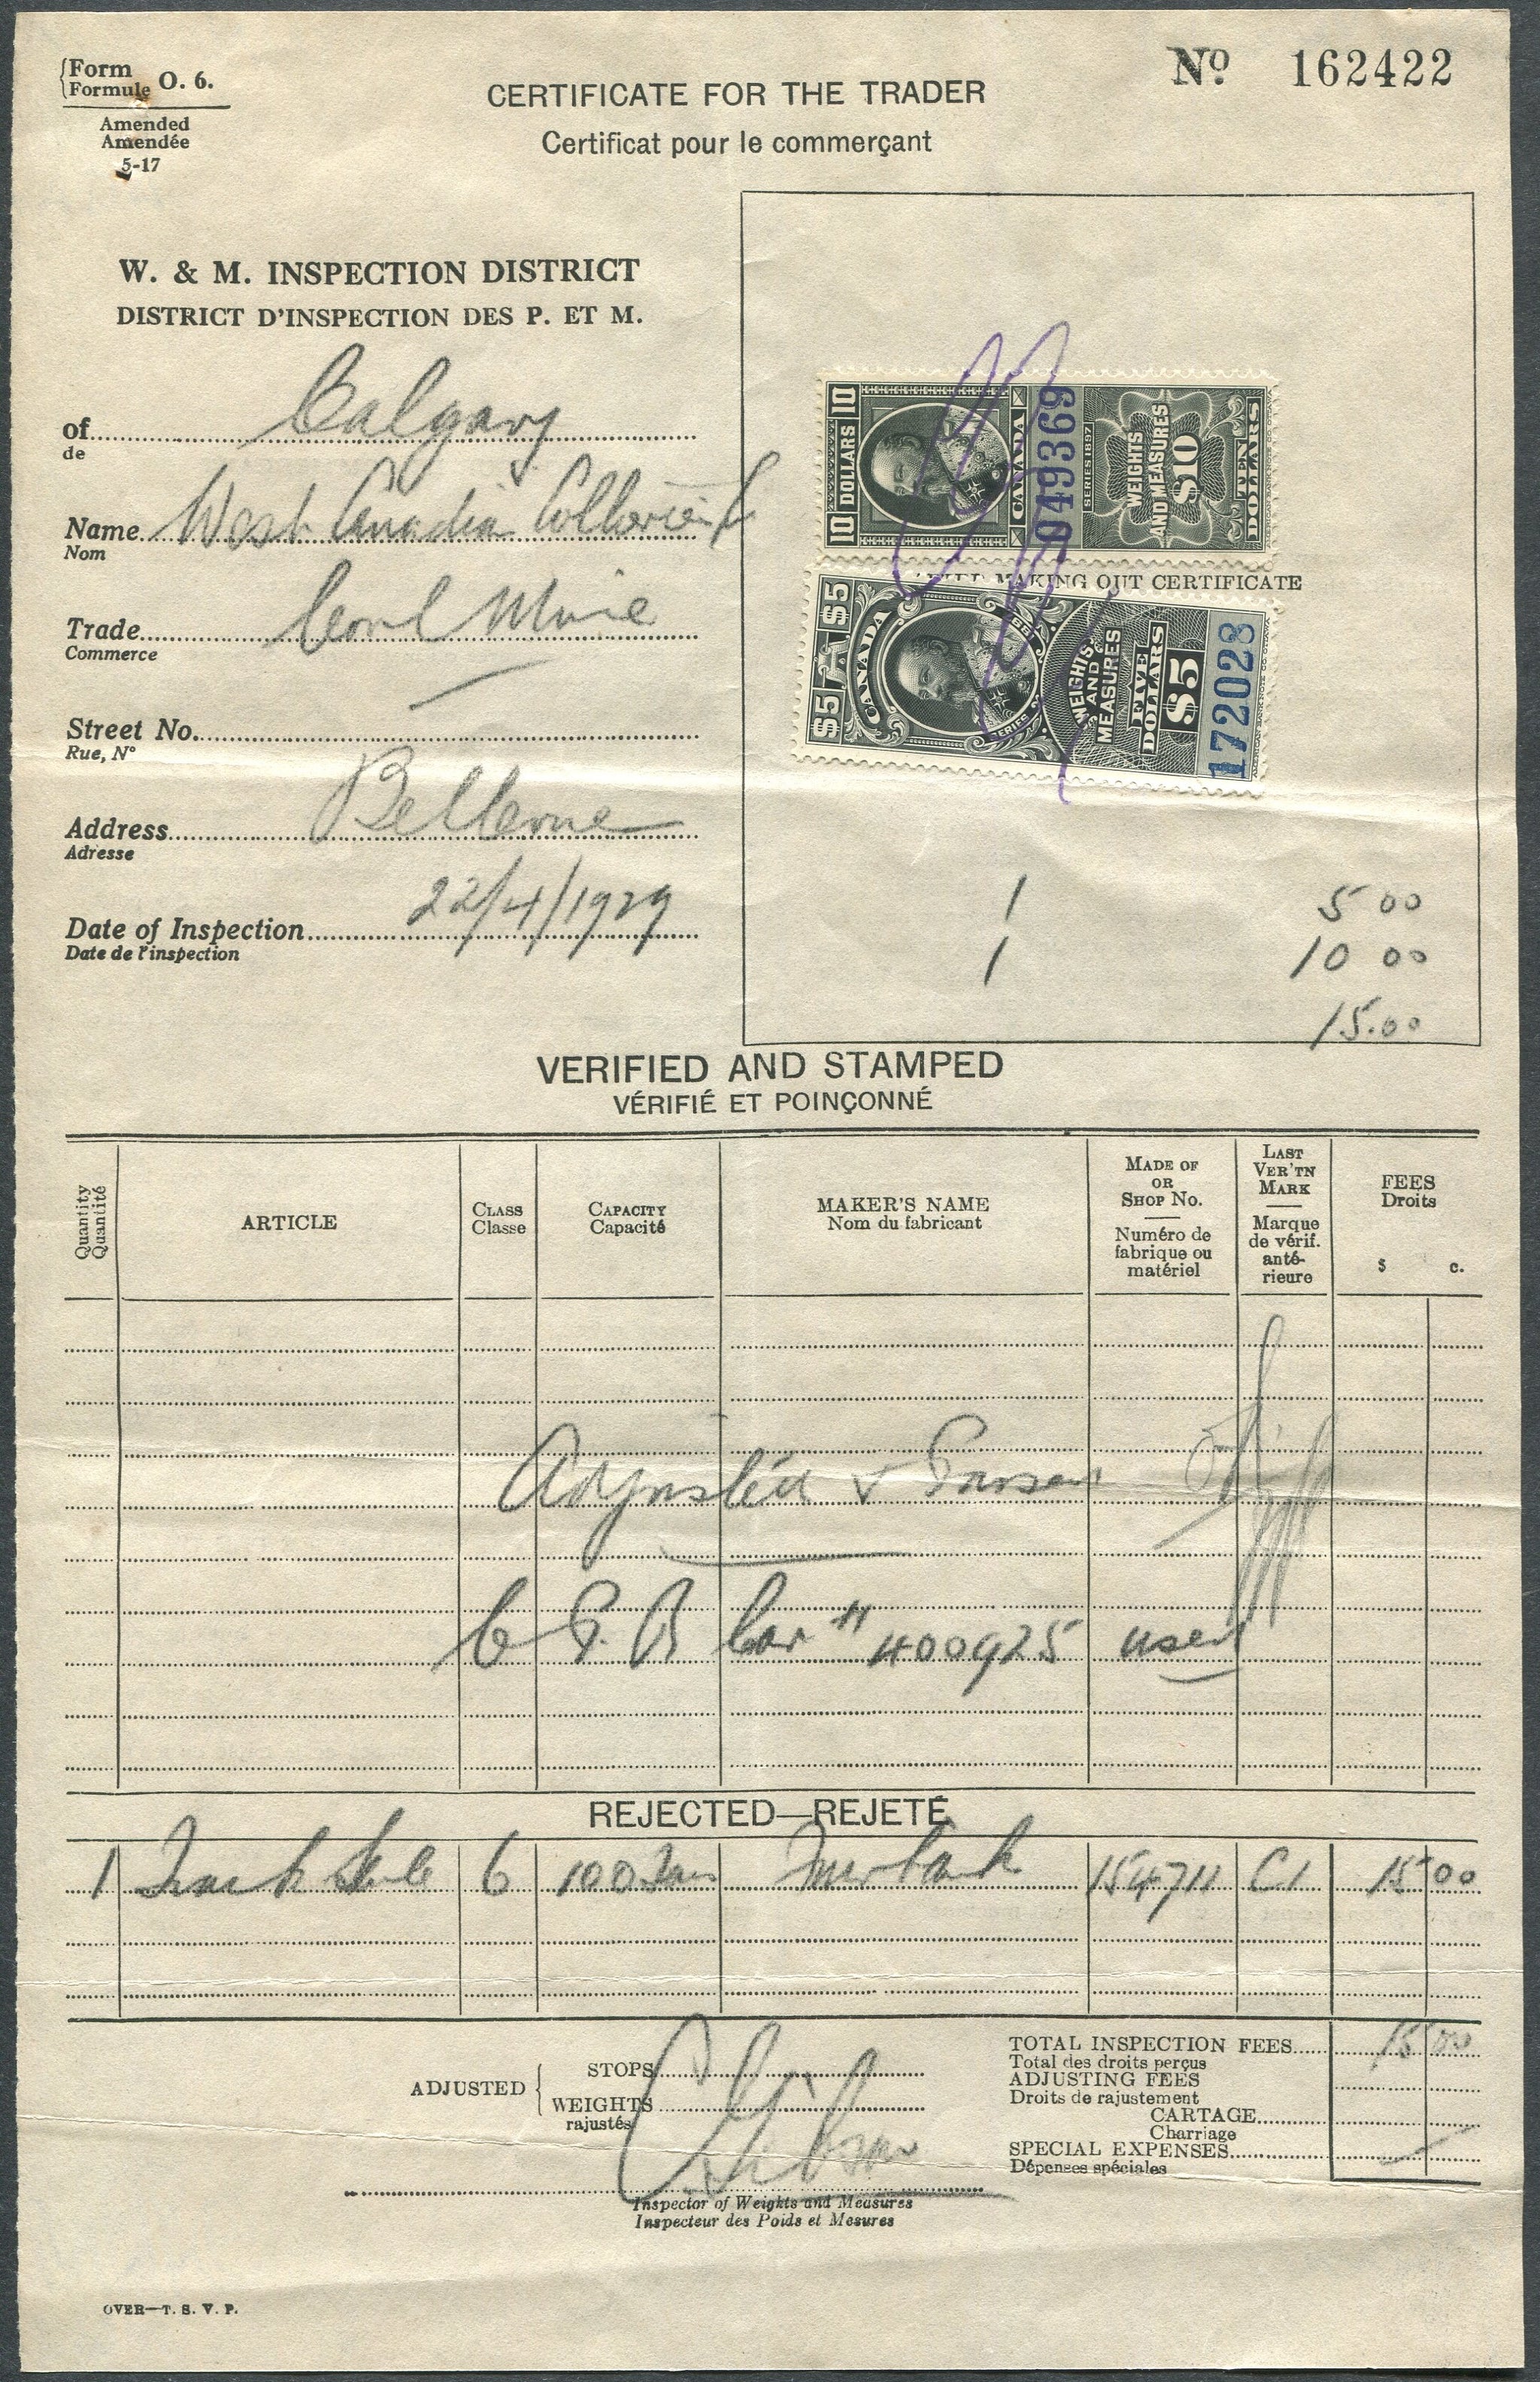 Form
Formule O. 6.
Amended
Amendée
5-17
Nº 162422
CERTIFICATE FOR THE TRADER
Certificat pour le commerçant
W. & M. INSPECTION DISTRICT
DISTRICT D'INSPECTION DES P. ET M.
of Calgary
de
Name West Canadian Collieries
Nom
Trade Coal Mine
Commerce
Street No.
Rue, Nº
Address Bellevue
Adresse
Date of Inspection 22/4/1929
Date de l'inspection
10 DOLLARS 10
CANADA
049369
SERIES 1897
WEIGHTS
AND MEASURES
$10
TEN
DOLLARS
MAKING OUT CERTIFICATE
$5 $5
CANADA
SERIES
WEIGHTS
AND
MEASURES
FIVE
DOLLARS
$5
172028
1 5 00
1 10 00
15.00
VERIFIED AND STAMPED
VÉRIFIÉ ET POINÇONNÉ
Quantity
Quantité
ARTICLE
CLASS
Classe
CAPACITY
Capacité
MAKER'S NAME
Nom du fabricant
MADE OF
OR
SHOP No.
Numéro de
fabrique ou
matériel
LAST
VER'TN
MARK
Marque
de vérif.
anté-
rieure
FEES
Droits
$ c.
Adjusted &
C P R Car # 400925 used
REJECTED—REJETÉ
1 Track Scale 6 100 Tons 154711 C1 15 00
ADJUSTED
STOPS
WEIGHTS
rajustés
TOTAL INSPECTION FEES 15 00
Total des droits perçus
ADJUSTING FEES
Droits de rajustement
CARTAGE
Charriage
SPECIAL EXPENSES
Dépenses spéciales
Inspector of Weights and Measures
Inspecteur des Poids et Mesures
OVER—T. S. V. P.